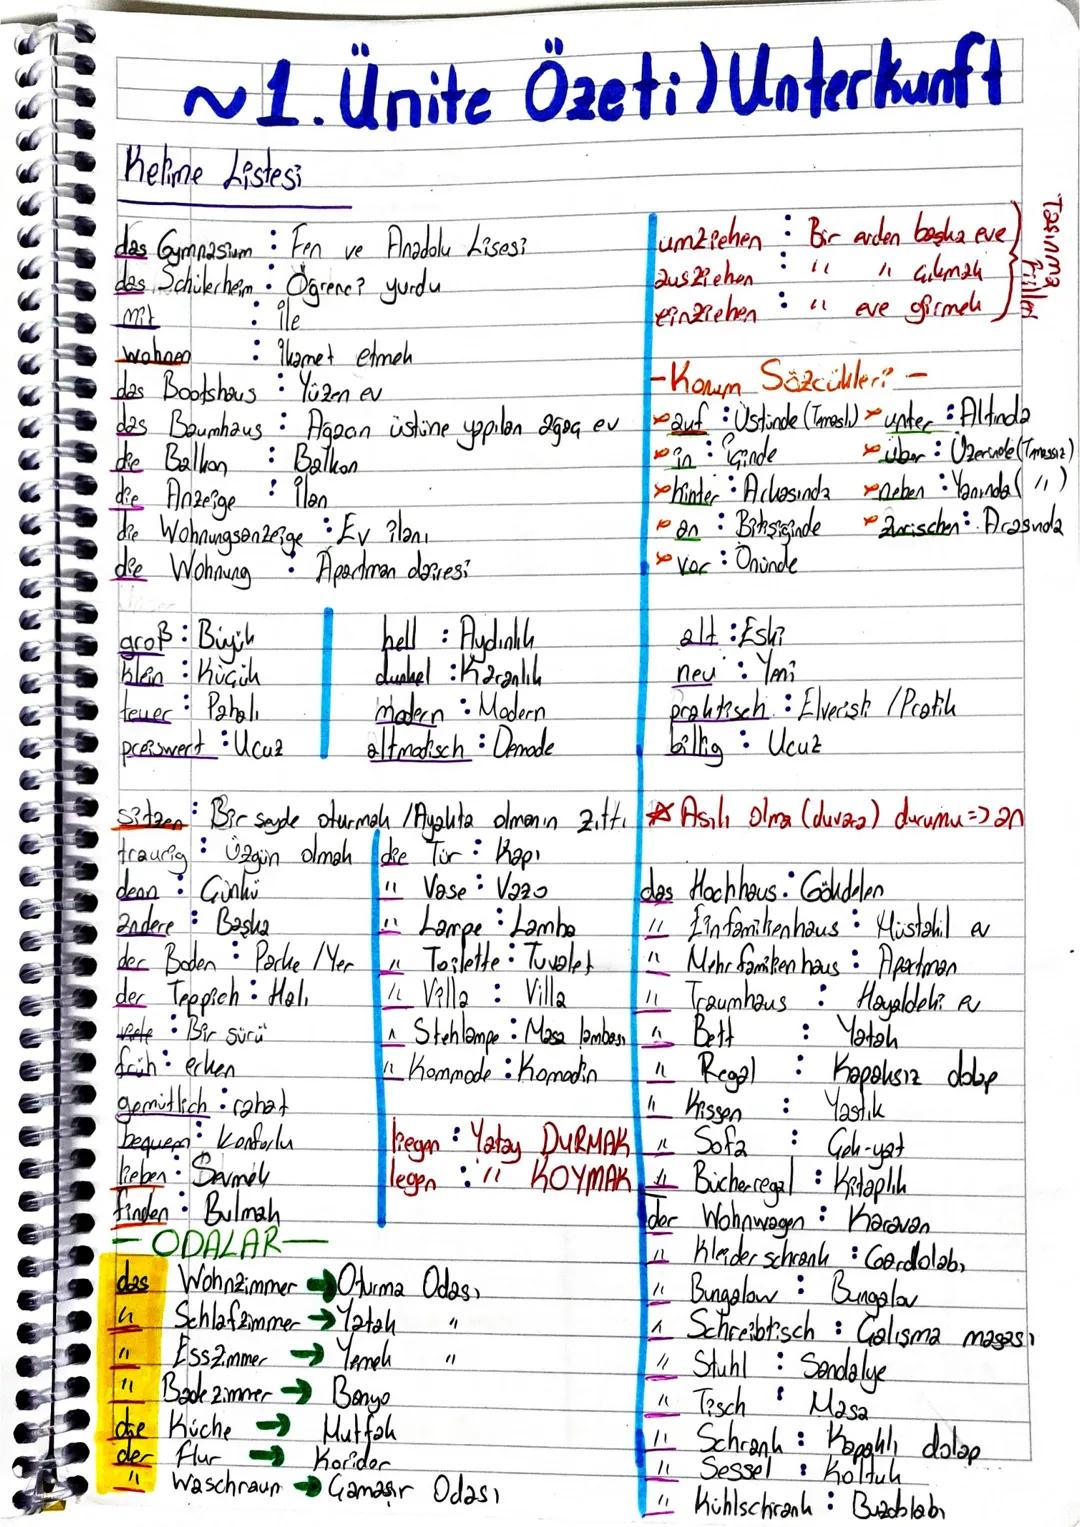 ~1. Ünite Özeti) Unterkunft
Kelime Listesi
das Gymnasium : Fen ve Anadolu Lisesi
das Schülerheim : Öğrenci yurdu
mit : ile
wohnen : İkamet etmek
das Bootshaus : Yüzen ev
das Baumhaus : Ağacın üstüne yapılan ağaç ev
die Balkon : Balkon
die Anzeige : İlan
die Wohnungsanzeige : Ev ilanı
die Wohnung : Apartman dairesi
umziehen : Bir evden başka eve
ausziehen : " " çıkmak
einziehen : " eve girmek
Taşınma Fiilleri
- Konum Sözcükleri -
auf : Üstünde (Temaslı) unter : Altında
in : içinde über : Üzerinde (Temassız)
hinter : Arkasında neben : Yanında ( " )
an : Bitişiğinde zwischen : Arasında
vor : Önünde
groß : Büyük
klein : Küçük
teuer : Pahalı
preiswert : Ucuz
hell : Aydınlık
dunkel : Karanlık
modern : Modern
altmodisch : Demode
alt : Eski
neu : Yeni
praktisch : Elverişli / Pratik
billig : Ucuz
sitzen : Bir şeyde oturmak / Ayakta olmanın zıttı
traurig : Üzgün olmak
denn : Çünkü
andere : Başka
der Boden : Parke / Yer
der Teppich : Halı
viele : Bir sürü
früh : erken
gemütlich : rahat
bequem : Konforlu
lieben : Sevmek
finden : Bulmak
die Tür : Kapı
" Vase : Vazo
" Lampe : Lamba
" Toilette : Tuvalet
" Villa : Villa
" Stehlampe : Masa lambası
" Kommode : Komodin
liegen : Yatay DURMAK
legen : " KOYMAK
* Asılı olma (duvara) durumu => an
das Hochhaus : Gökdelen
" Einfamilienhaus : Müstakil ev
" Mehrfamilienhaus : Apartman
" Traumhaus : Hayaldeki ev
" Bett : Yatak
" Regal : Kapaksız dolap
" Kissen : Yastık
" Sofa : Çek-yat
" Bücherregal : Kitaplık
der Wohnwagen : Karavan
" Kleiderschrank : Gardolabı
" Bungalow : Bungalov
" Schreibtisch : Çalışma masası
" Stuhl : Sandalye
" Tisch : Masa
" Schrank : Kapaklı dolap
" Sessel : Koltuk
" Kühlschrank : Buzdolabı
- ODALAR -
das Wohnzimmer → Oturma Odası
" Schlafzimmer → Yatak "
" Esszimmer → Yemek "
" Badezimmer → Banyo
die Küche → Mutfak
der Flur → Koridor
" Waschraum → Çamaşır Odası